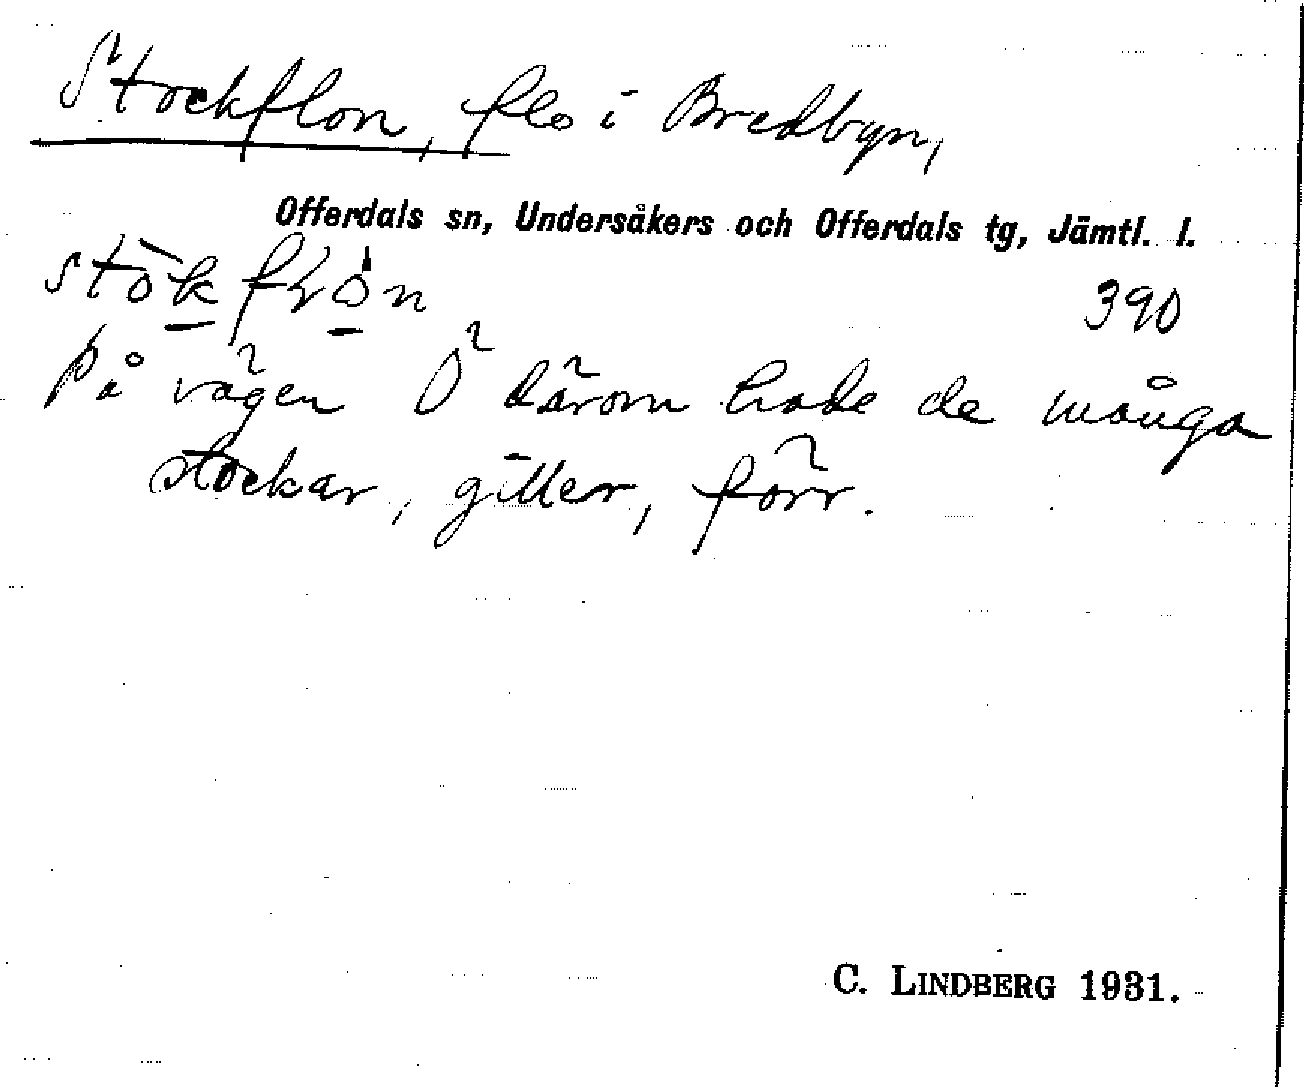 Stockflon, flo i Bredbyn,
Offerdals sn, Undersåkers och Offerdals tg, Jämtl. l.
390
På vägen Ö därom hade de många
stockar, giller, förr.
C. LINDBERG 1931.